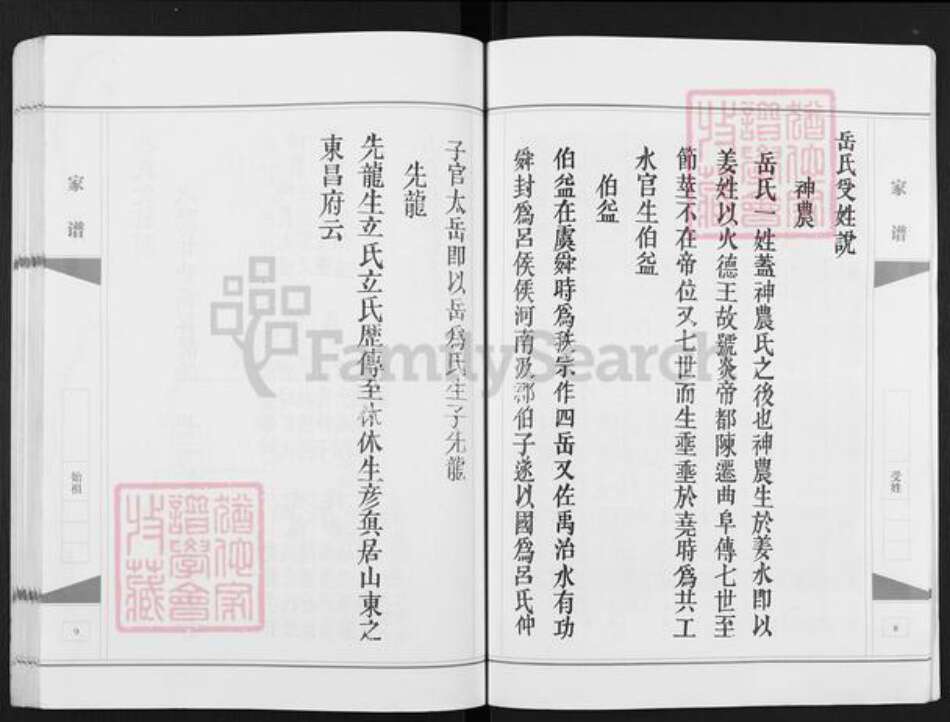 家譜
受姓
8
岳氏受姓說
神農
岳氏一姓蓋神農氏之後也神農生於姜水即以
姜姓以火德王故號炎帝都陳遷曲阜傳七世至
節莖不在帝位又七世而生垂垂於堯時為共工
水官生伯益
伯益
伯益在虞舜時為秩宗作四岳又佐禹治水有功
舜封為呂侯侯河南汲郡伯子遂以國為呂氏仲
子官太岳即以岳為氏生子先龍
先龍
先龍生立氏立氏歷傳至休休生彦眞居山東之
東昌府云
家譜
始祖
9
FamilySearch